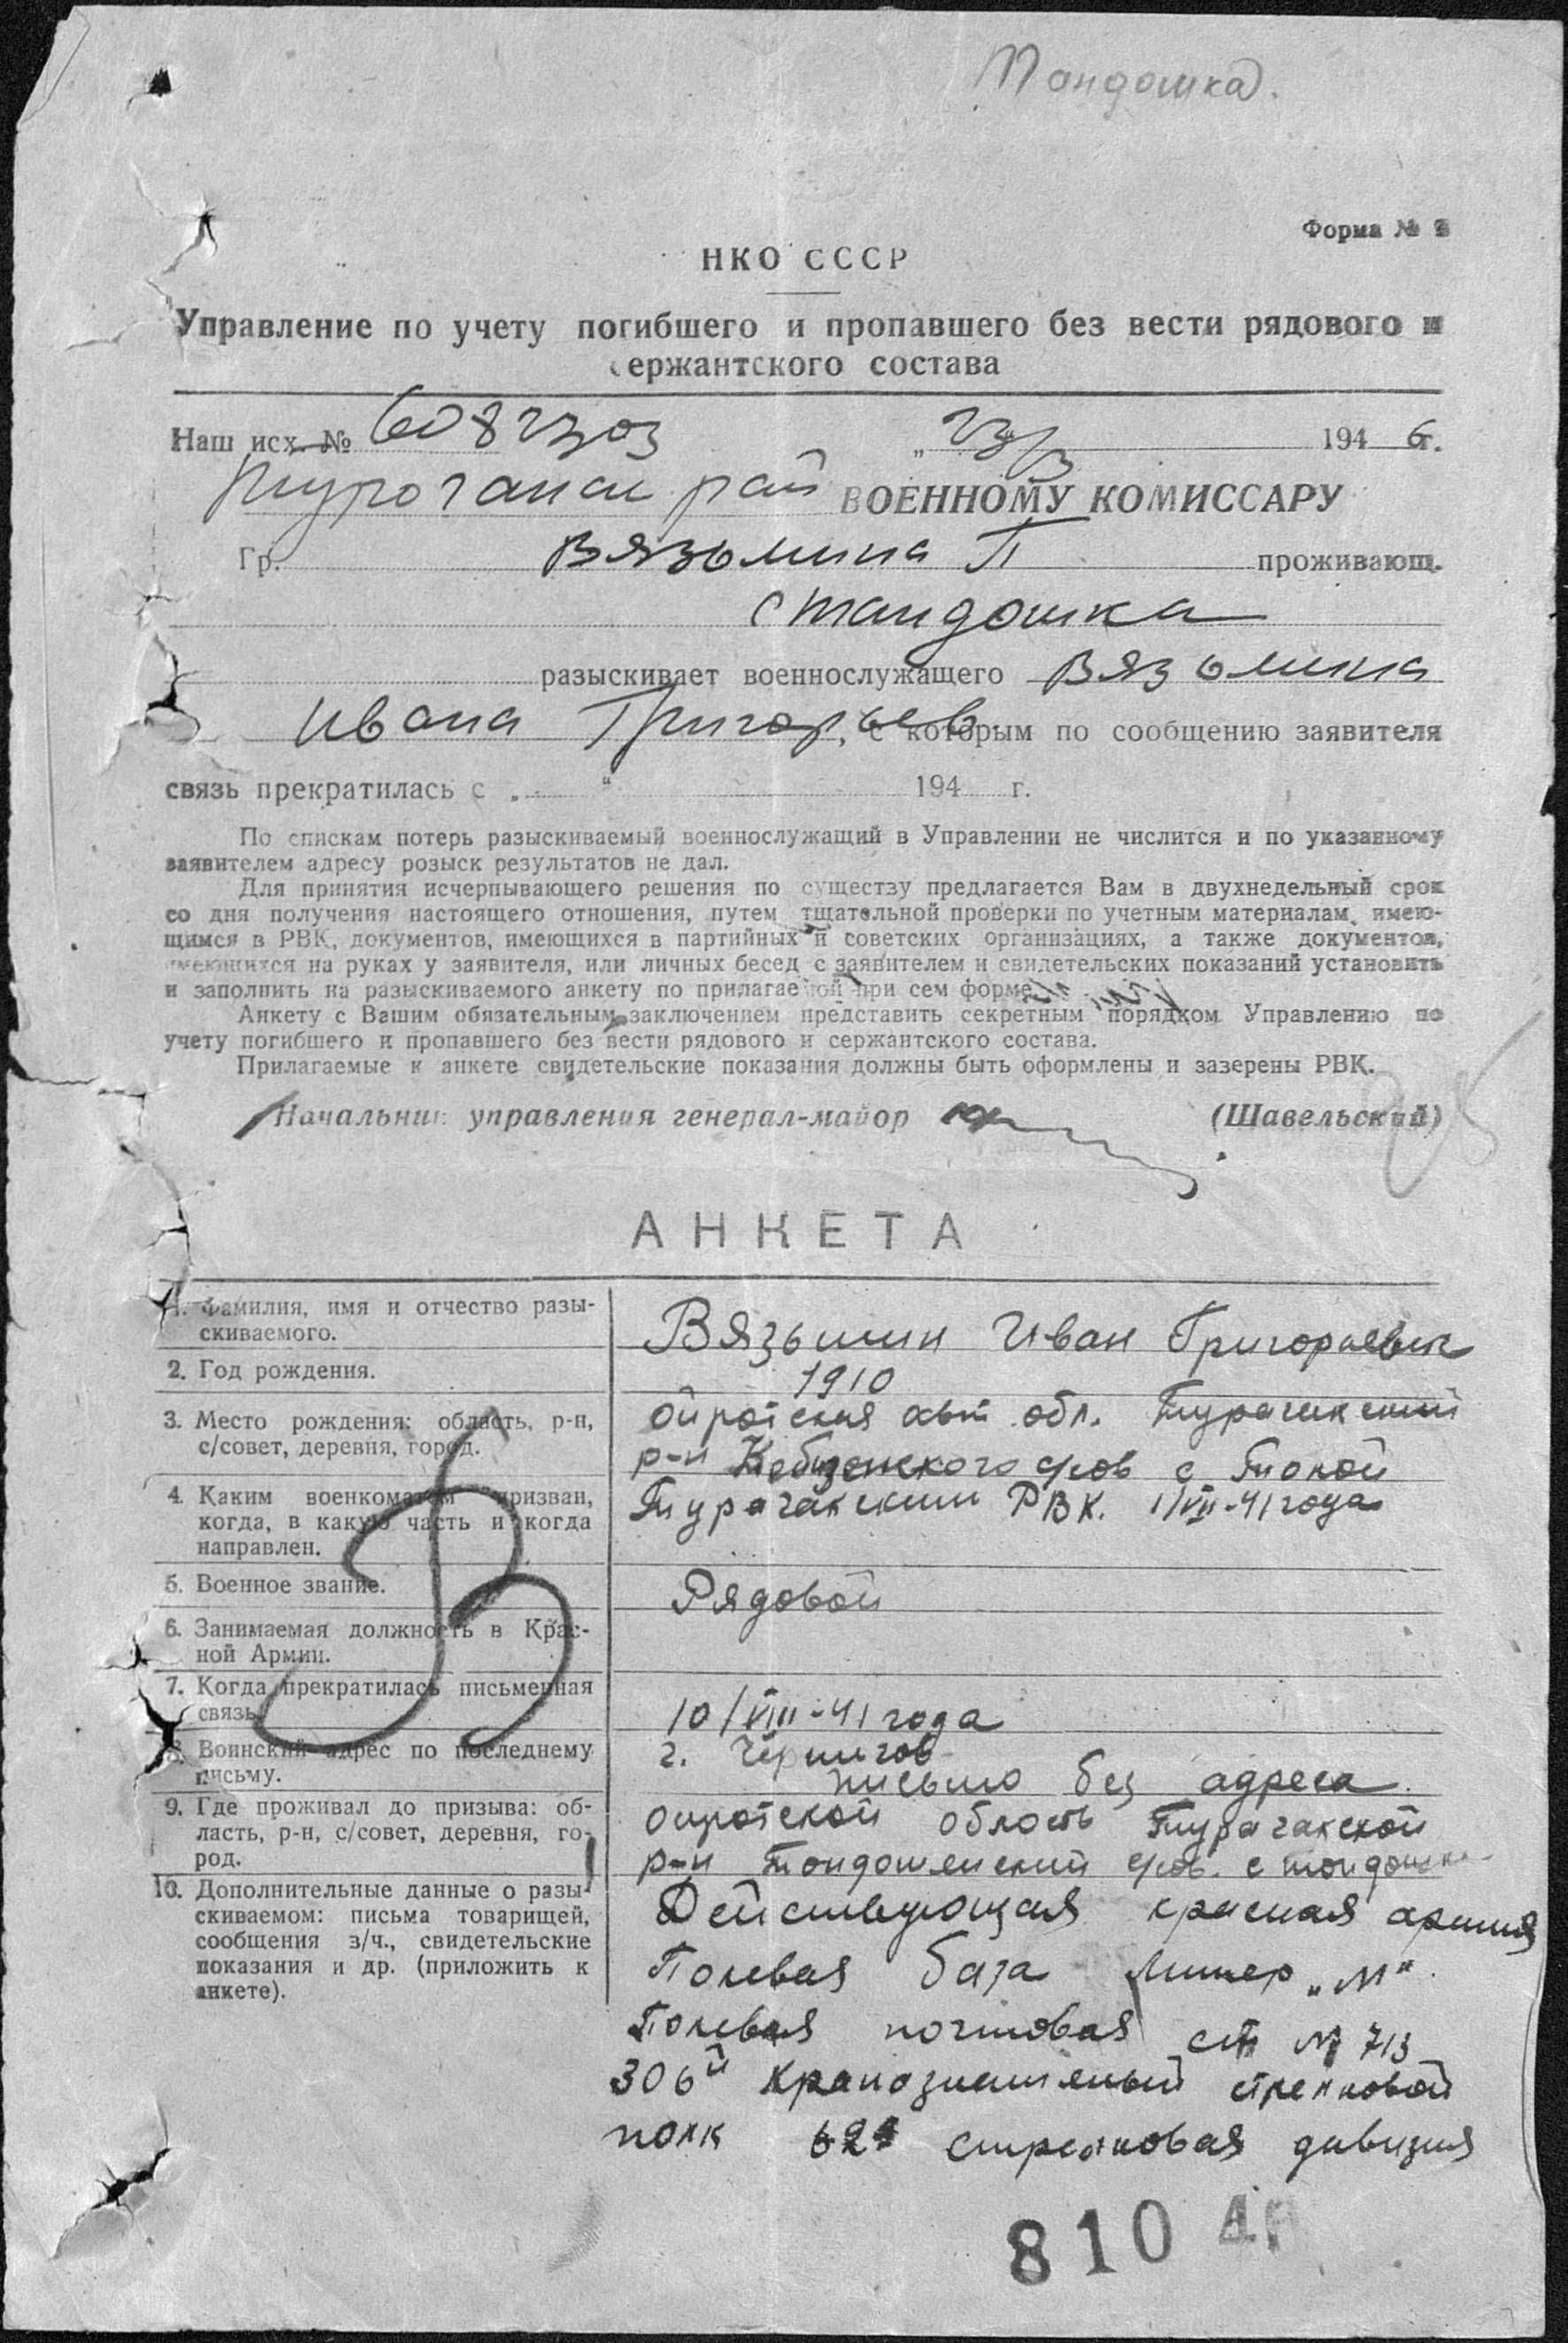 Тондошка.
Форма №
НКО СССР
Управление по учету погибшего и пропавшего без вести рядового и
сержантского состава
Наш исх. № 6082303 „23/3 194 6 г.
Турочакск рай ВОЕННОМУ КОМИССАРУ
Гр. Вязьмина П проживающ.
с Тандошка
разыскивает военнослужащего Вязьмина
Ивана Григорьев, с которым по сообщению заявителя
связь прекратилась с „ “ 194 г.
По спискам потерь разыскиваемый военнослужащий в Управлении не числится и по указанному
заявителем адресу розыск результатов не дал.
Для принятия исчерпывающего решения по существу предлагается Вам в двухнедельный срок
со дня получения настоящего отношения, путем тщательной проверки по учетным материалам, имею-
щимся в РВК, документов, имеющихся в партийных и советских организациях, а также документов,
имеющихся на руках у заявителя, или личных бесед с заявителем и свидетельских показаний установить
и заполнить на разыскиваемого анкету по прилагаемой при сем форме.
Анкету с Вашим обязательным заключением представить секретным порядком Управлению по
учету погибшего и пропавшего без вести рядового и сержантского состава.
Прилагаемые к анкете свидетельские показания должны быть оформлены и зазерены РВК.
Начальник управления генерал-майор (Шавельский)
АНКЕТА
1. Фамилия, имя и отчество разы-
скиваемого.
Вязьмин Иван Григорьевич
2. Год рождения.
1910
3. Место рождения: область, р-н,
с/совет, деревня, город.
Ойротская авт обл. Турачакский
р-н Кебезенского с/сов с Токой
4. Каким военкоматом призван,
когда, в какую часть и когда
направлен.
Турачакским РВК. 1/VII-41 года
5. Военное звание.
Рядовой
6. Занимаемая должность в Крас-
ной Армии.
7. Когда прекратилась письменная
связь.
10/VIII-41 года
8. Воинский адрес по последнему
письму.
г. Чернигов
письмо без адреса
9. Где проживал до призыва: об-
ласть, р-н, с/совет, деревня, го-
род.
Ойротской область Турачакской
р-н Тондошенский с/сов. с Тондошка
10. Дополнительные данные о разы-
скиваемом: письма товарищей,
сообщения з/ч., свидетельские
показания и др. (приложить к
анкете).
Действующая красная армия
Полевая база Литер „М“
Полевая почтовая ст № 713
306й Краснознаменный стрелковой
полк 62я стрелковая дивизия
В
810